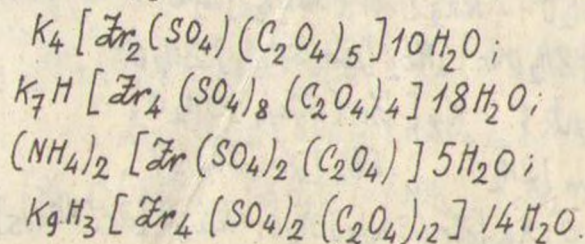 K₄[Zr₂(SO₄)(C₂O₄)₅]10H₂O;
K₇H[Zr₄(SO₄)₈(C₂O₄)₄]18H₂O;
(NH₄)₂[Zr(SO₄)₂(C₂O₄)]5H₂O;
K₉H₃[Zr₄(SO₄)₂(C₂O₄)₁₂]14H₂O.